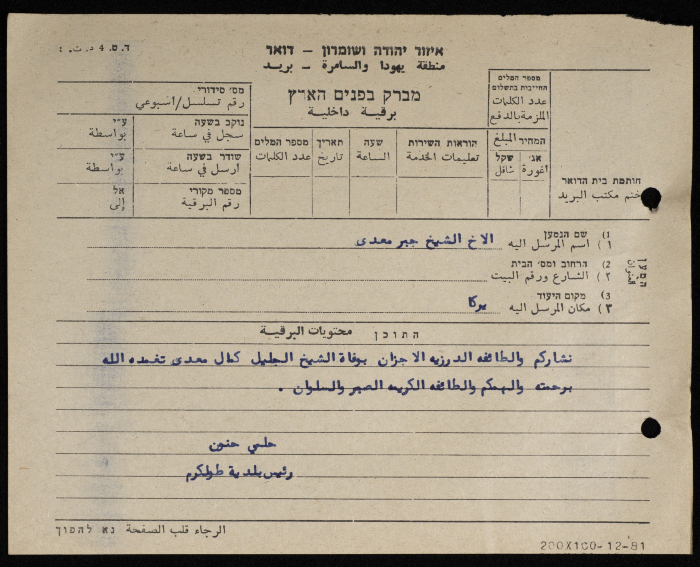 ד.ט. 4 ד.ת. :
איזור יהודה ושומרון - דואר
منطقة يهودا والسامرة - بريد
מברק בפנים הארץ
برقية داخلية
מספר המלים
החייבות בתשלום
عدد الكلمات
الملزمة بالدفع
המחיר المبلغ
אג' שקל
اغورة شاقل
הוראות השירות
تعليمات الخدمة
שעה
الساعة
תאריך
تاريخ
מספר המלים
عدد الكلمات
מס' סידורי
رقم تسلسل/اسبوعي
נוקב בשעה ע"י
سجل في ساعة بواسطة
שודר בשעה ע"י
ارسل في ساعة بواسطة
מספר מקורי אל
رقم البرقية إلى
חותמת בית הדואר
ختم مكتب البريد
המען
العنوان
1) שם הנמען
١) اسم المرسل اليه الاخ الشيخ جبر معدي
2) הרחוב ומס' הבית
٢) الشارع ورقم البيت
3) מקום היעוד
٣) مكان المرسل اليه يركا
התוכן محتويات البرقية
نشاركم والطائفه الدرزيه الاحزان بوفاة الشيخ الجليل كمال معدي تغمده الله
برحمته والهمكم والطائفه الكريمه الصبر والسلوان .
حلمي حنون
رئيس بلدية طولكرم
الرجاء قلب الصفحة נא להפוך
200X100-12-81